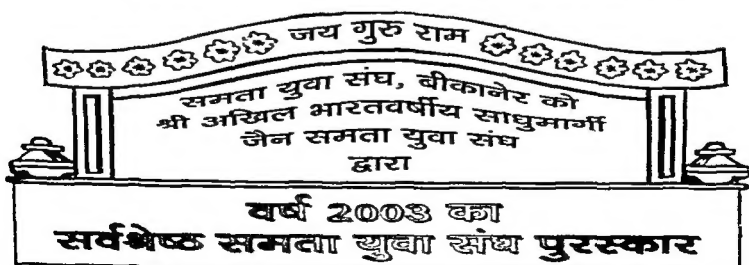 जय गुरु राम
समता युवा संघ, बीकानेर को
श्री अखिल भारतवर्षीय साधुमार्गी
जैन समता युवा संघ
द्वारा
वर्ष 2003 का
सर्वश्रेष्ठ समता युवा संघ पुरस्कार